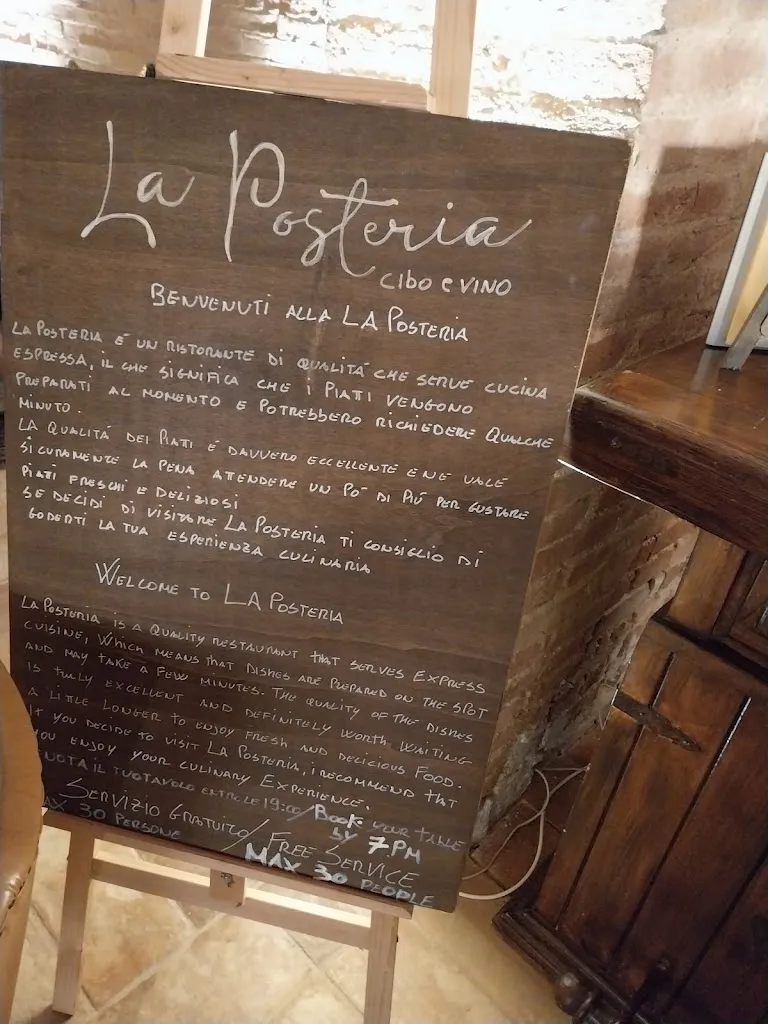 La Posteria
CIBO e VINO
BENVENUTI ALLA LA POSTERIA
LA POSTERIA É UN RISTORANTE DI QUALITÁ CHE SERVE CUCINA
ESPRESSA, IL CHE SIGNIFICA CHE I PIATI VENGONO
PREPARATI AL MOMENTO E POTREBBERO RICHIEDERE QUALCHE
MINUTO.
LA QUALITÁ DEI PIATI É DAVVERO ECCELLENTE E NE VALE
SICURAMENTE LA PENA ATENDERE UN PO' DI PIÚ PER GUSTARE
PIATI FRESCHI E DELIZIOSI
SE DECIDI DI VISITARE LA POSTERIA TI CONSIGLIO DI
GODERTI LA TUA ESPERIENZA CULINARIA
WELCOME TO LA POSTERIA
LA POSTERIA IS A QUALITY RESTAURANT THAT SERVES EXPRESS
CUISINE, WHICH MEANS THAT DISHES ARE PREPARED ON THE SPOT
AND MAY TAKE A FEW MINUTES. THE QUALITY OF THE DISHES
IS TRULY EXCELLENT AND DEFINITELY WORTH WAITING
A LITTLE LONGER TO ENJOY FRESH AND DELICIOUS FOOD.
IF YOU DECIDE TO VISIT LA POSTERIA, I RECOMMEND THAT
YOU ENJOY YOUR CULINARY EXPERIENCE.
IL TUO TAVOLO ENTRO LE 19:00/BOOK YOUR TABLE
BY 7PM
SERVIZIO GRATUITO/FREE SERVICE
MAX 30 PERSONE MAX 30 PEOPLE